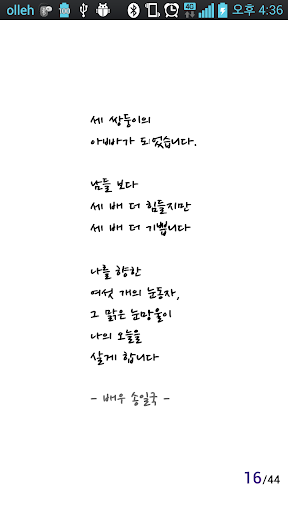 olleh 오후 4:36
세 쌍둥이의
아빠가 되었습니다.
남들 보다
세 배 더 힘들지만
세 배 더 기쁩니다
나를 향한
여섯 개의 눈동자,
그 맑은 눈망울이
나의 오늘을
살게 합니다
- 배우 송일국 -
16/44